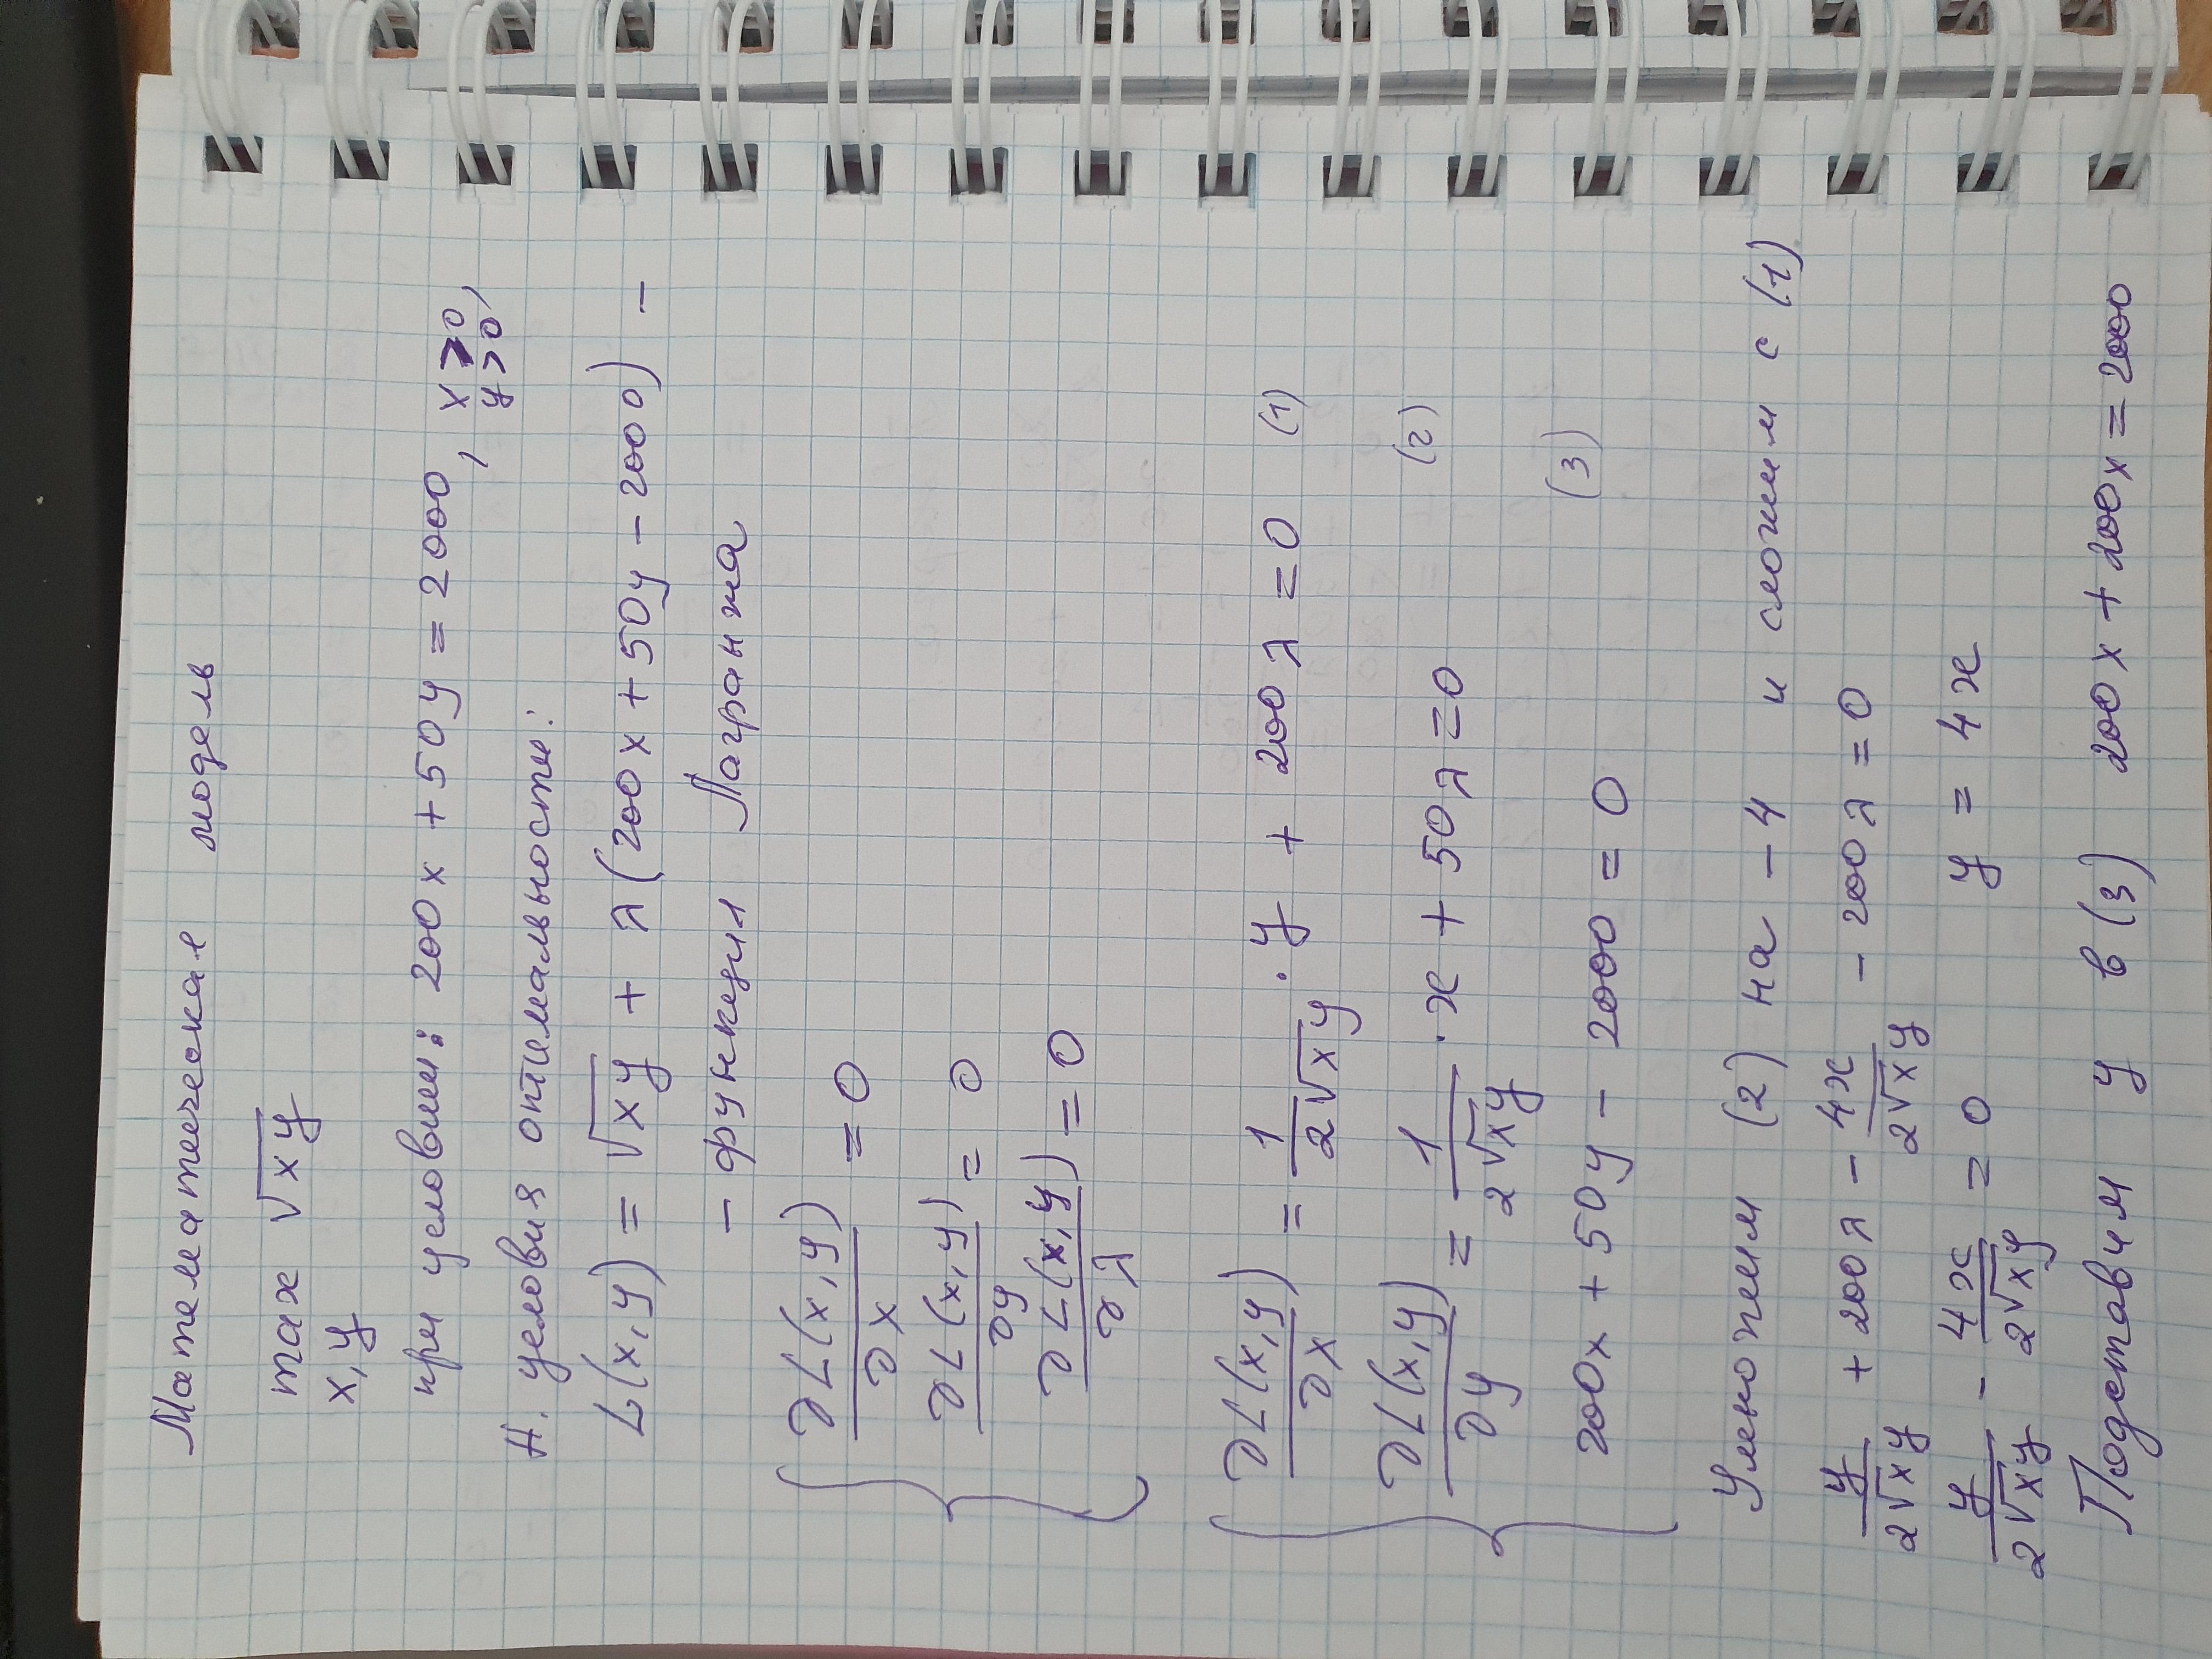 Математическая модель
max √xy
x,y
при условии: 200x + 50y = 2000, x ≥ 0, y > 0,
Н. условия оптимальности:
L(x,y) = √xy + λ(200x + 50y - 2000) -
- функция Лагранжа
∂L(x,y)/∂x = 0
∂L(x,y)/∂y = 0
∂L(x,y)/∂λ = 0
∂L(x,y)/∂x = 1/2√xy · y + 200λ = 0 (1)
∂L(x,y)/∂y = 1/2√xy · x + 50λ = 0 (2)
200x + 50y - 2000 = 0 (3)
Умножим (2) на - 4 и сложим с (1)
y/2√xy + 200λ - 4x/2√xy - 200λ = 0
y/2√xy - 4x/2√xy = 0 y = 4x
Подставим y в (3) 200x + 200x = 2000